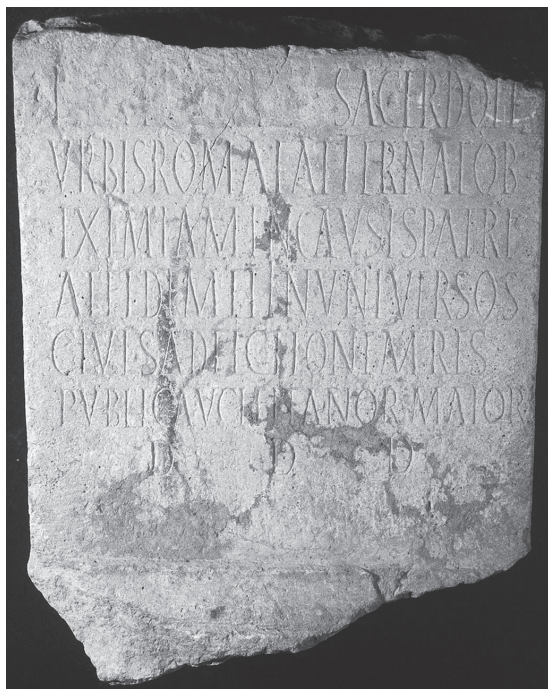 SACERDOTI
VRBIS ROMAE AETERNAE OB
EXIMIAM IN CAVSIS PATRI
AE FIDEM ET IN VNIVERSOS
CIVES ADFECTIONEM RES
PVBLIC AVCHITANOR MAIOR
D D D